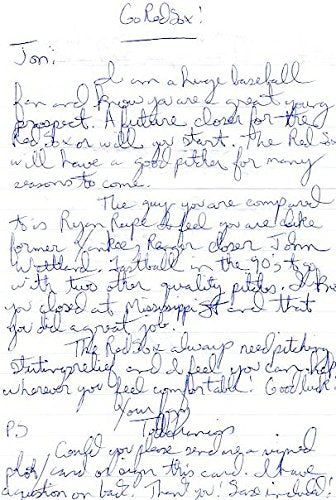 Go Red Sox!
Jon:
I am a huge baseball
fan and know you are a great young
prospect. A future closer for the
Red Sox or well you start. The Red Sox
will have a good pitcher for many
seasons to come.
The guy you are compared
to is Ryan I feel you are like
former Yankee, Ranger closer John
Wetteland. Fastball in the 90's to go
with two other quality pitches. I know
you closed at Mississippi St and that
you did a great job!
The Red Sox always need pitching
starting relief and I feel you can help
wherever you feel comfortable! Good luck!
Your
PS
Could you please send me a signed
photo/card or sign this card. I have
a question on back. Thank you!